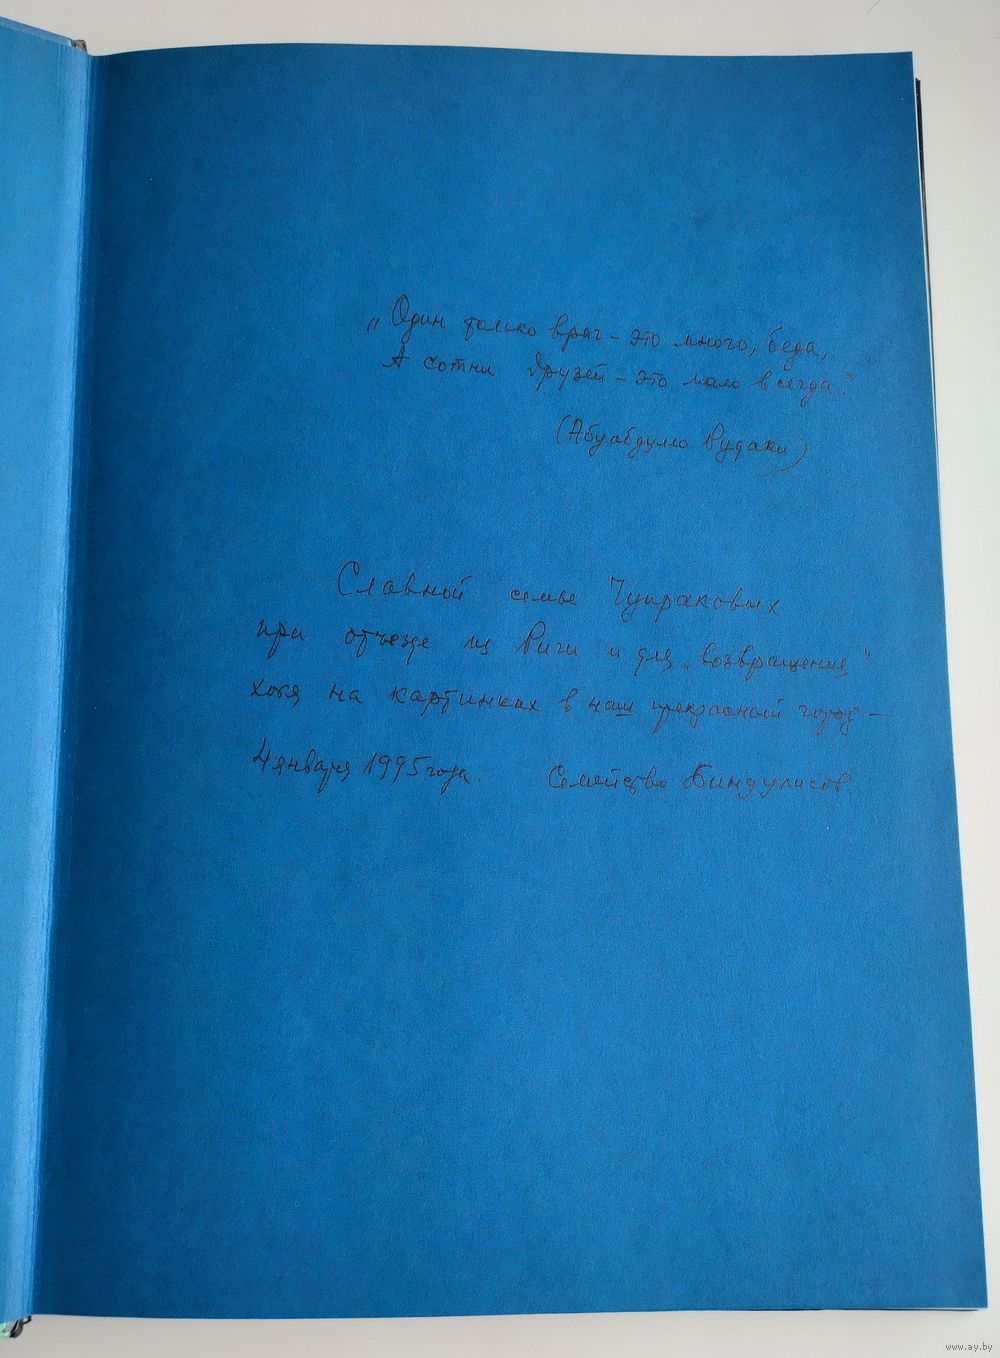 „Один только враг – это много, беда,
А сотни друзей – это мало всегда."
(Абуабдулло Рудаки)
Славной семье Чупраковых
при отъезде из Риги и для „возвращения"
хотя на картинках в наш прекрасный город –
4 января 1995 года. Семейство Биндулисов.
www.ay.by